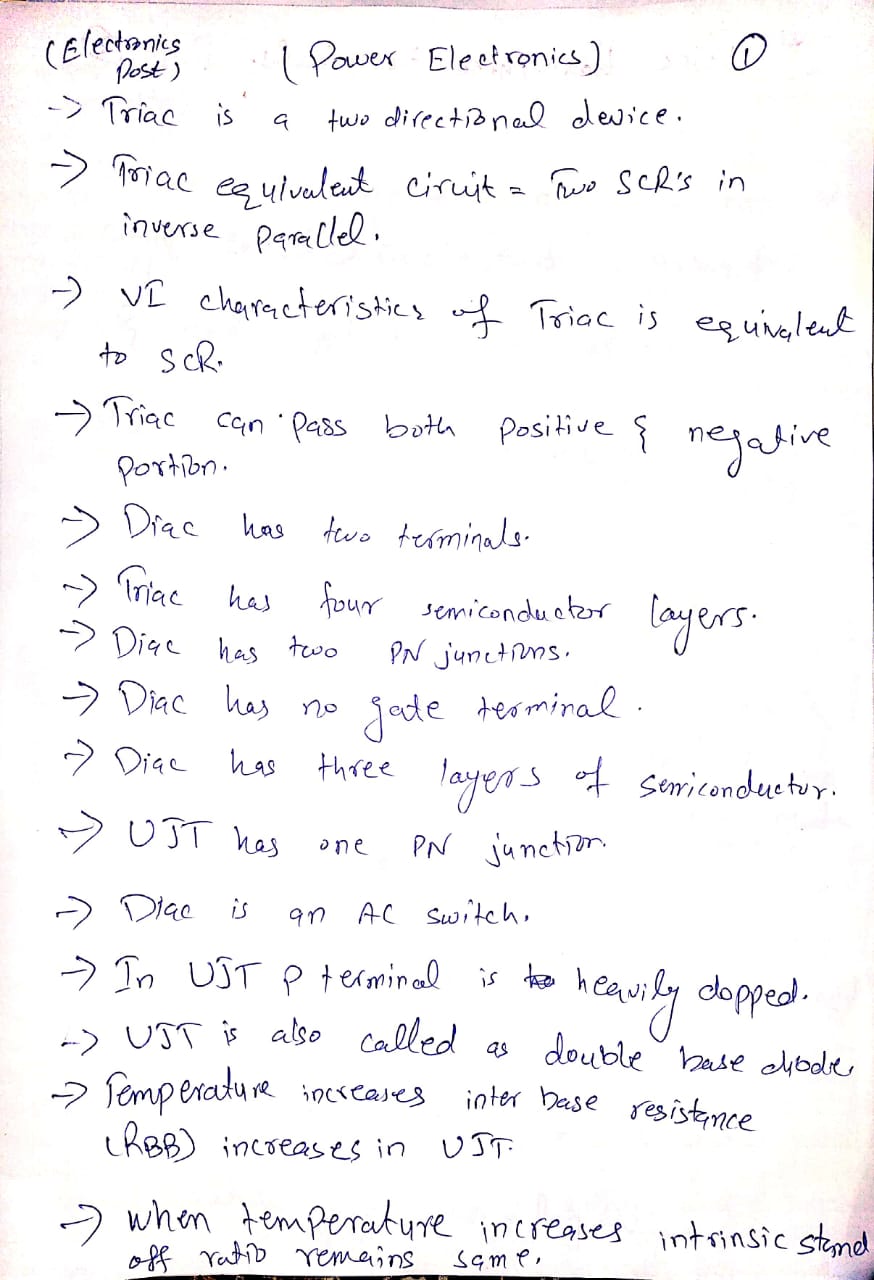 (Electronics Post) (Power Electronics) ①
-> Triac is a two directional device.
-> Triac equivalent ciruit = Two SCR's in
inverse parallel.
-> VI characteristics of Triac is equivalent
to SCR.
-> Triac can pass both positive & negative
portion.
-> Diac has two terminals.
-> Triac has four semiconductor layers.
-> Diac has two PN junctions.
-> Diac has no gate terminal.
-> Diac has three layers of semiconductor.
-> UJT has one PN junction.
-> Diac is an AC switch.
-> In UJT P terminal is heavily dopped.
-> UJT is also called as double base diode
-> Temperature increases inter base resistance
(RBB) increases in UJT.
-> when temperature increases intrinsic stand
off ratio remains same.